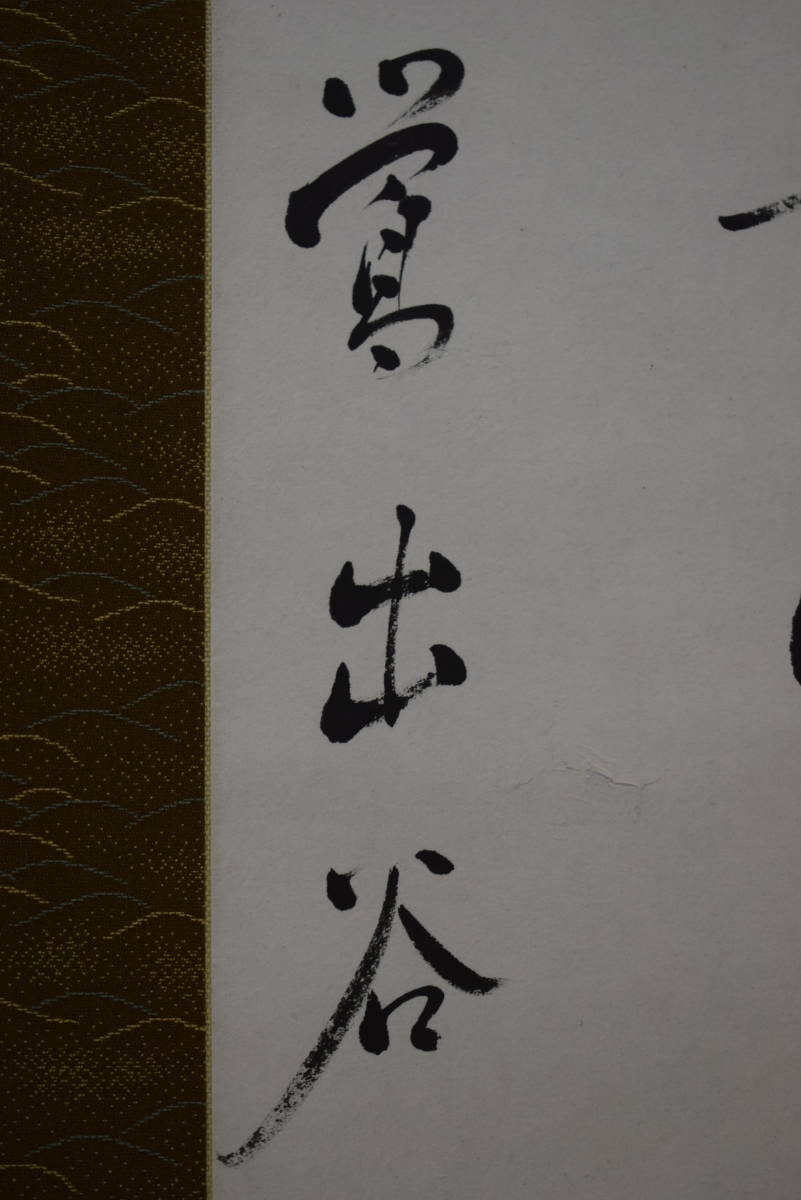 鶯出谷